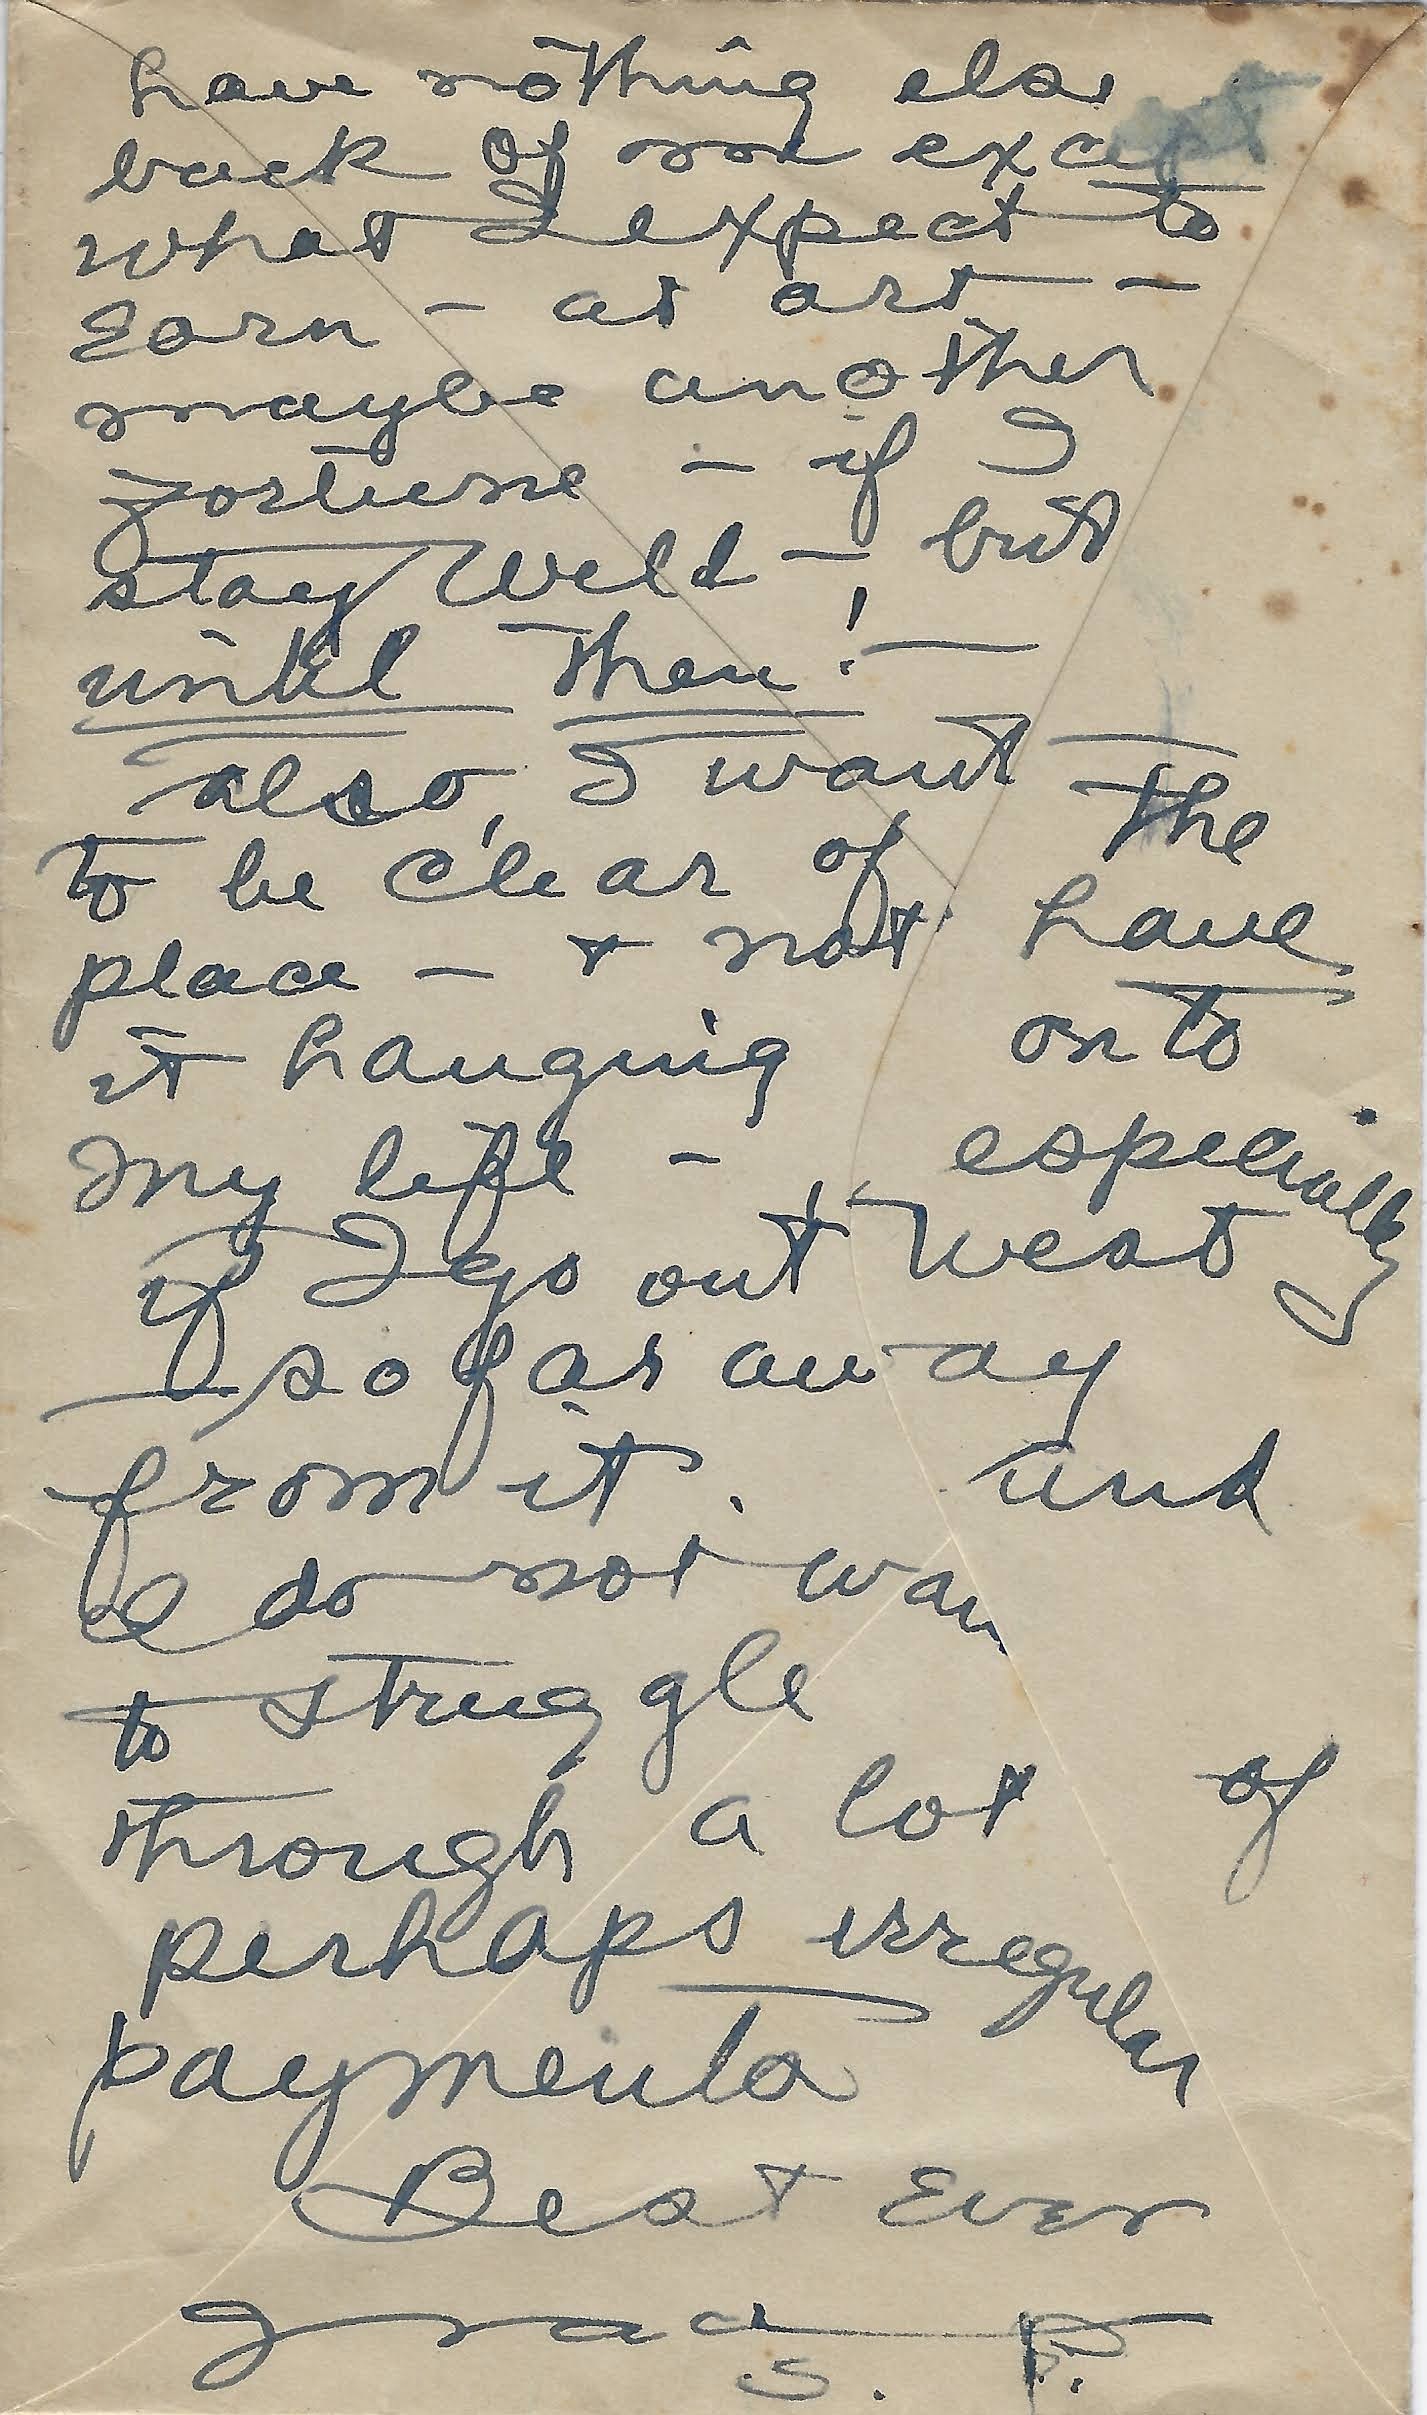 have nothing else
back of me except
what I expect to
earn - at art -
maybe another
fortune - if I
stay well - but
until then! -
also, I want the
to be clear of
place - & not have
it hanging onto
my life - especially
if I go out West
so far away
from it. and
I do not wan
to struggle
through a lot of
perhaps irregular
payments
Best Ever
Grace
S. P.